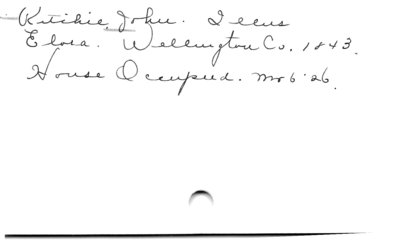 Ritchie, John.
Elora. Wellington Co. 1843.
House Occupied. Mr 6 '26.